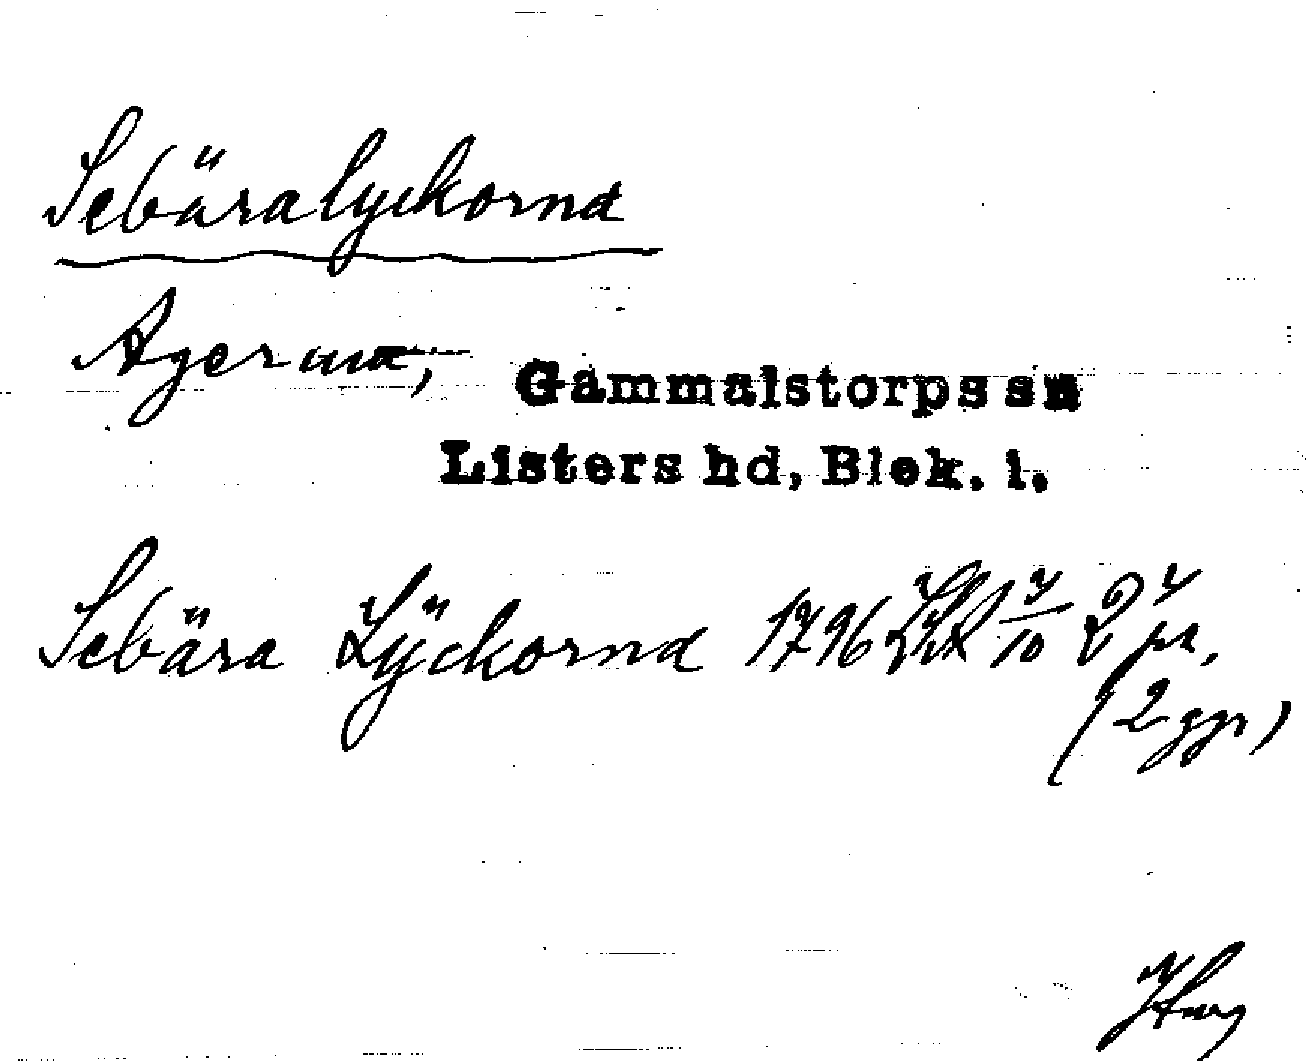 Sebäralyckorna
Agerum, Gammalstorps sn
Listers hd, Blek. l.
Sebära Lÿckorna 1796
(2 ggr)